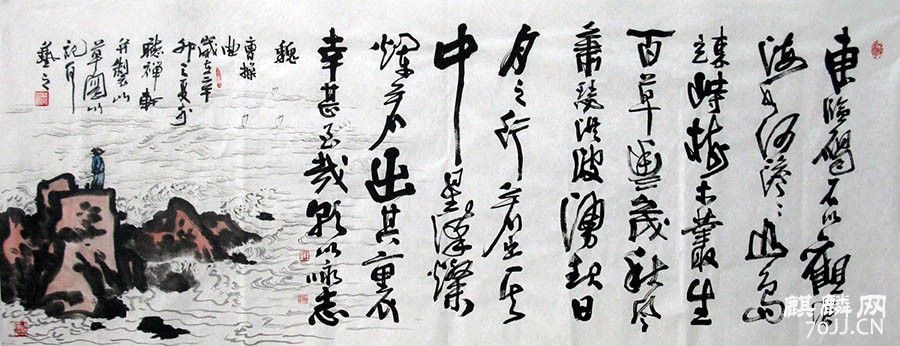 東臨碣石以觀滄
海水何澹〻山島
竦峙樹木叢生
百草豐茂秋風
蕭瑟洪波湧起日
月之行若出其
中星漢燦
爛若出其裏
幸甚至哉歌以詠志
魏
曹操
曲
歲在辛
卯之夏於
聽禪軒
并製以
草圖以
記耳
藝之
麒麟网
76JJ.CN